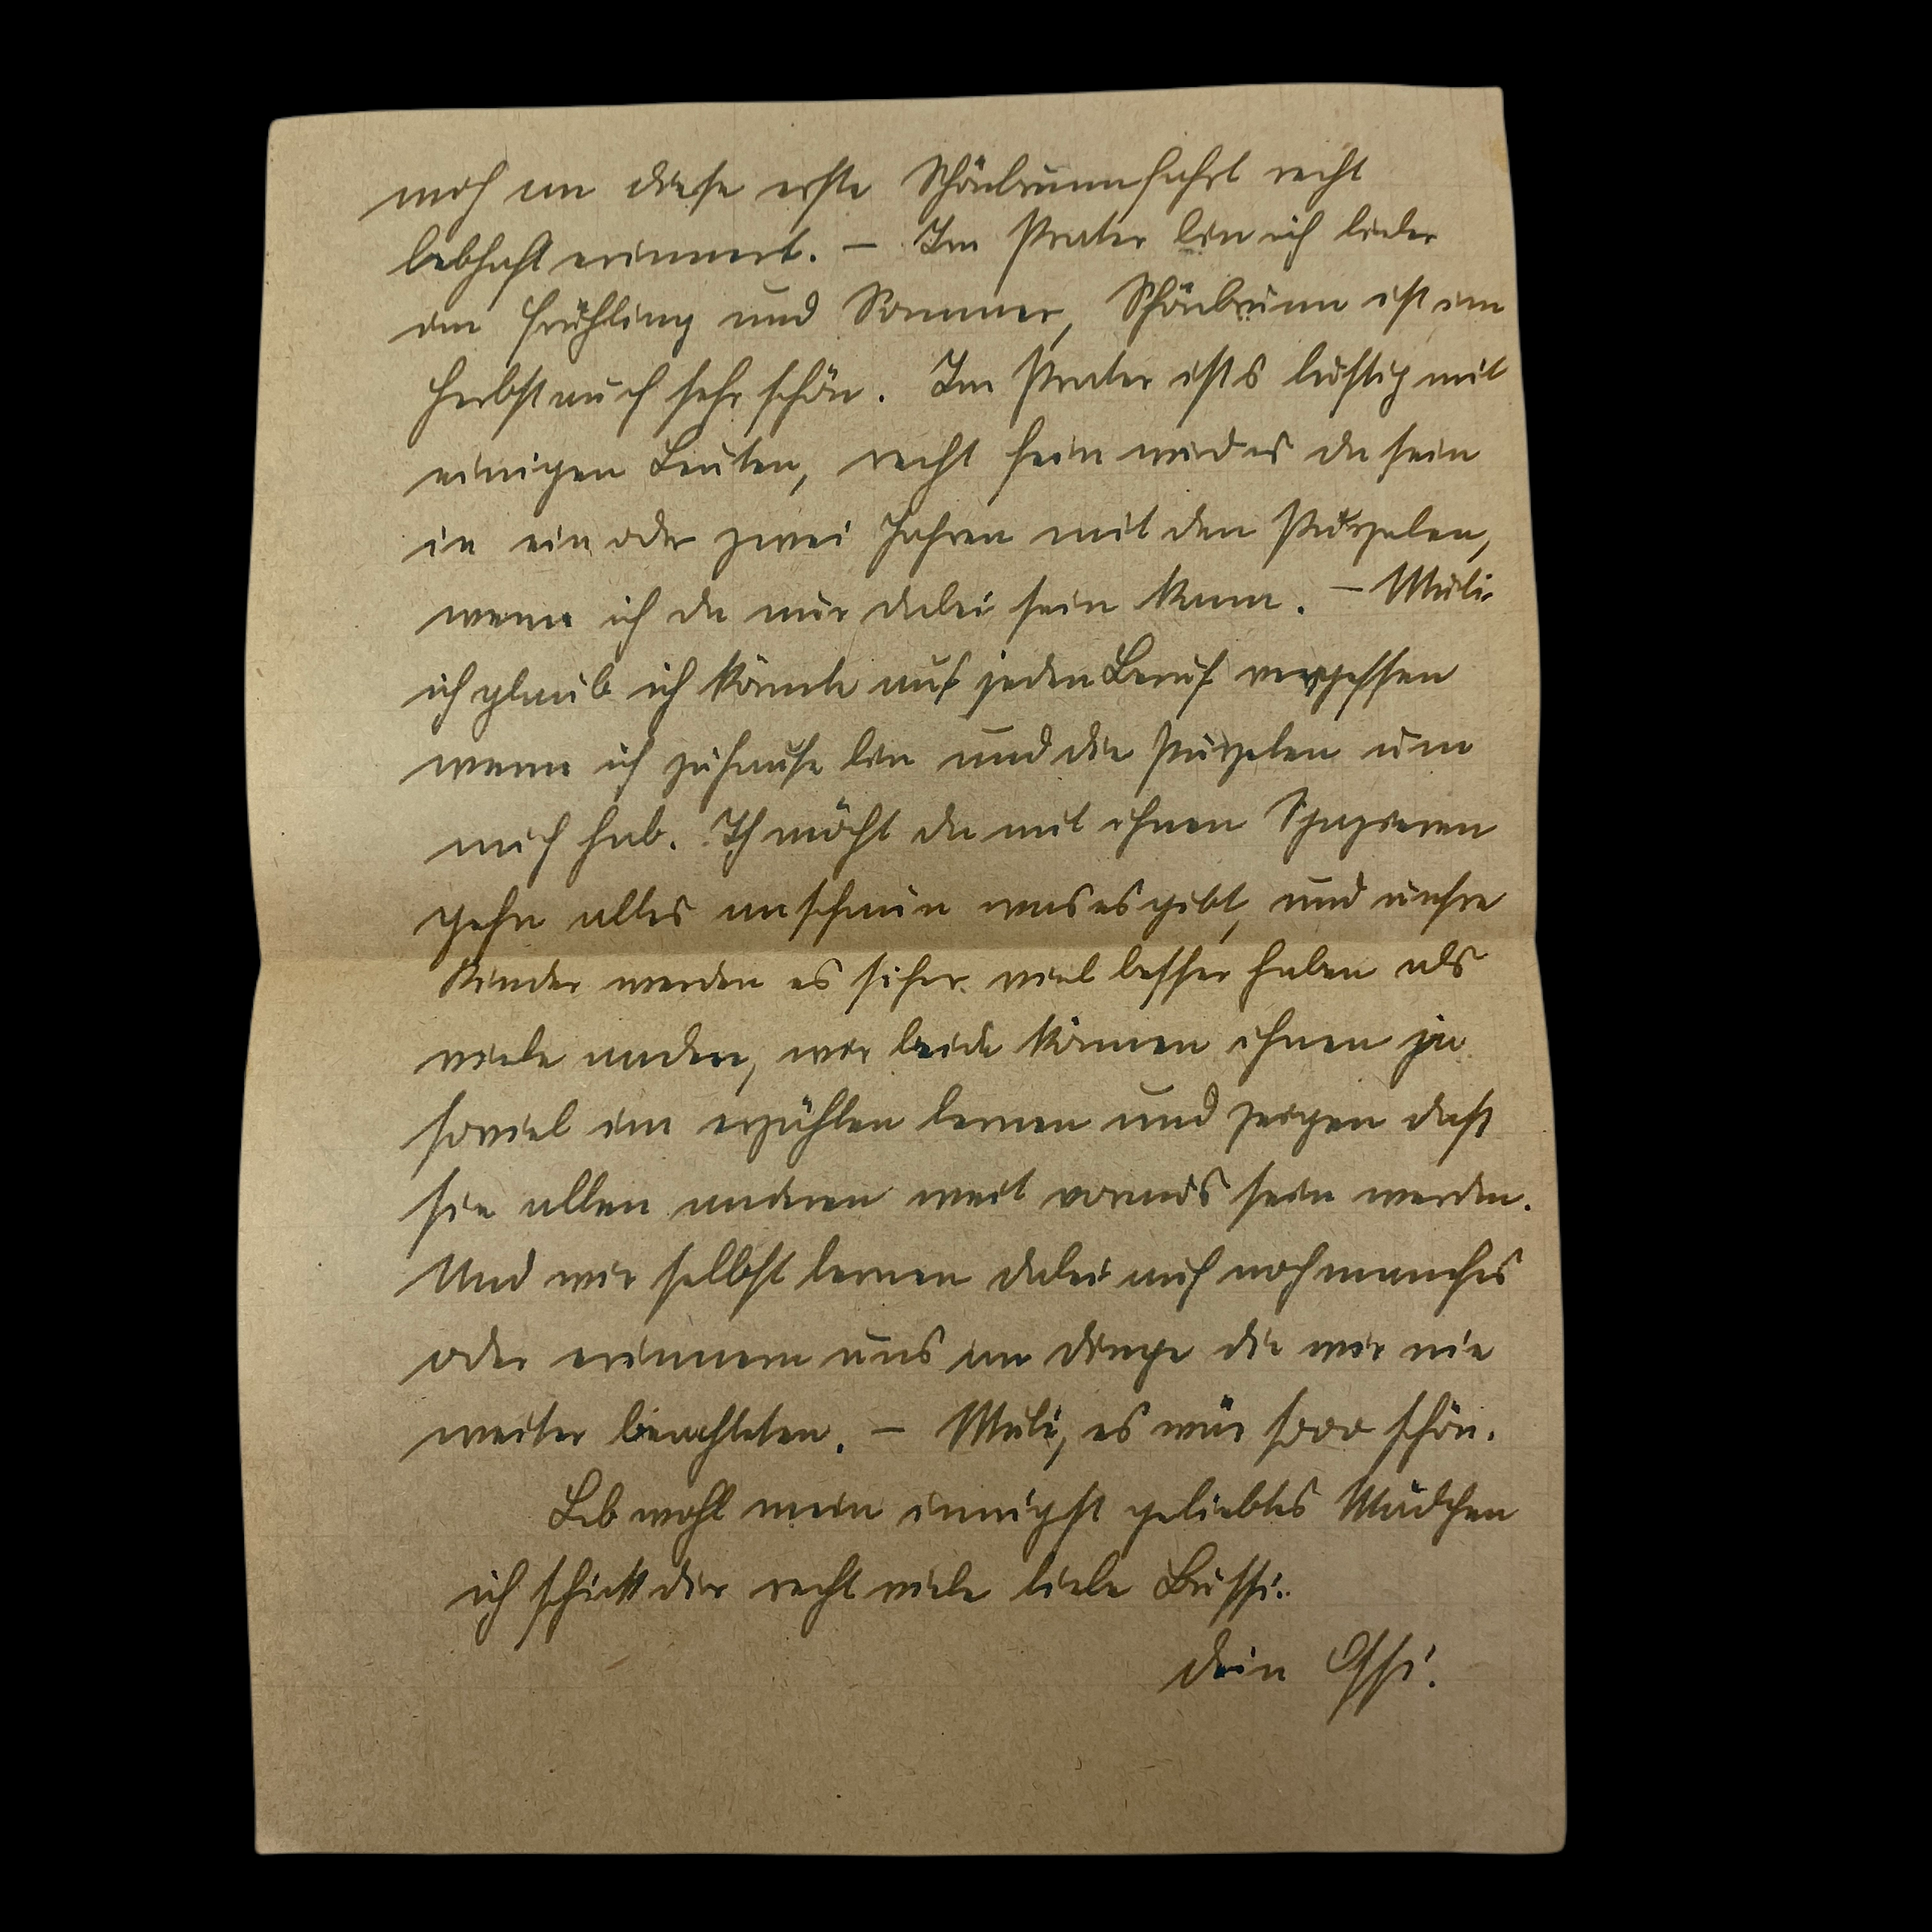 mich an diese erste Schönbrunnfahrt recht
lebhaft erinnert. – Im Prater bin ich lieber
im Frühling und Sommer, Schönbrunn ist im
Herbst auch sehr schön. Im Prater ists lustig mit
einigen Leuten, recht fein wird es da sein
in ein oder zwei Jahren mit den Purzelen,
wenn ich da nur dabei sein kann. – Muli
ich glaub ich könnte auf jeden Beruf vergessen
wenn ich zuhause bin und die Purzelen um
mich hab. Ich möcht da mit ihnen Spazieren
gehn alles anschaun was es gibt, und unsre
Kinder werden es sicher viel besser haben als
viele andere, wir beide können ihnen ja
soviel im erzählen lernen und zeigen dass
sie allen anderen weit voraus sein werden.
Und wir selbst lernen dabei auch noch manches
oder erinnern uns an Dinge die wir nie
weiter beachteten. – Muli, es wär sooo schön.
Leb wohl mein innigst geliebtes Mädchen
ich schick dir recht viele liebe Bussi..
Dein Ossi.